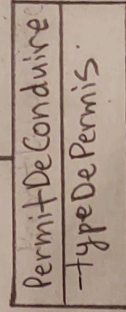 PermitDeConduire
-typeDePermis.